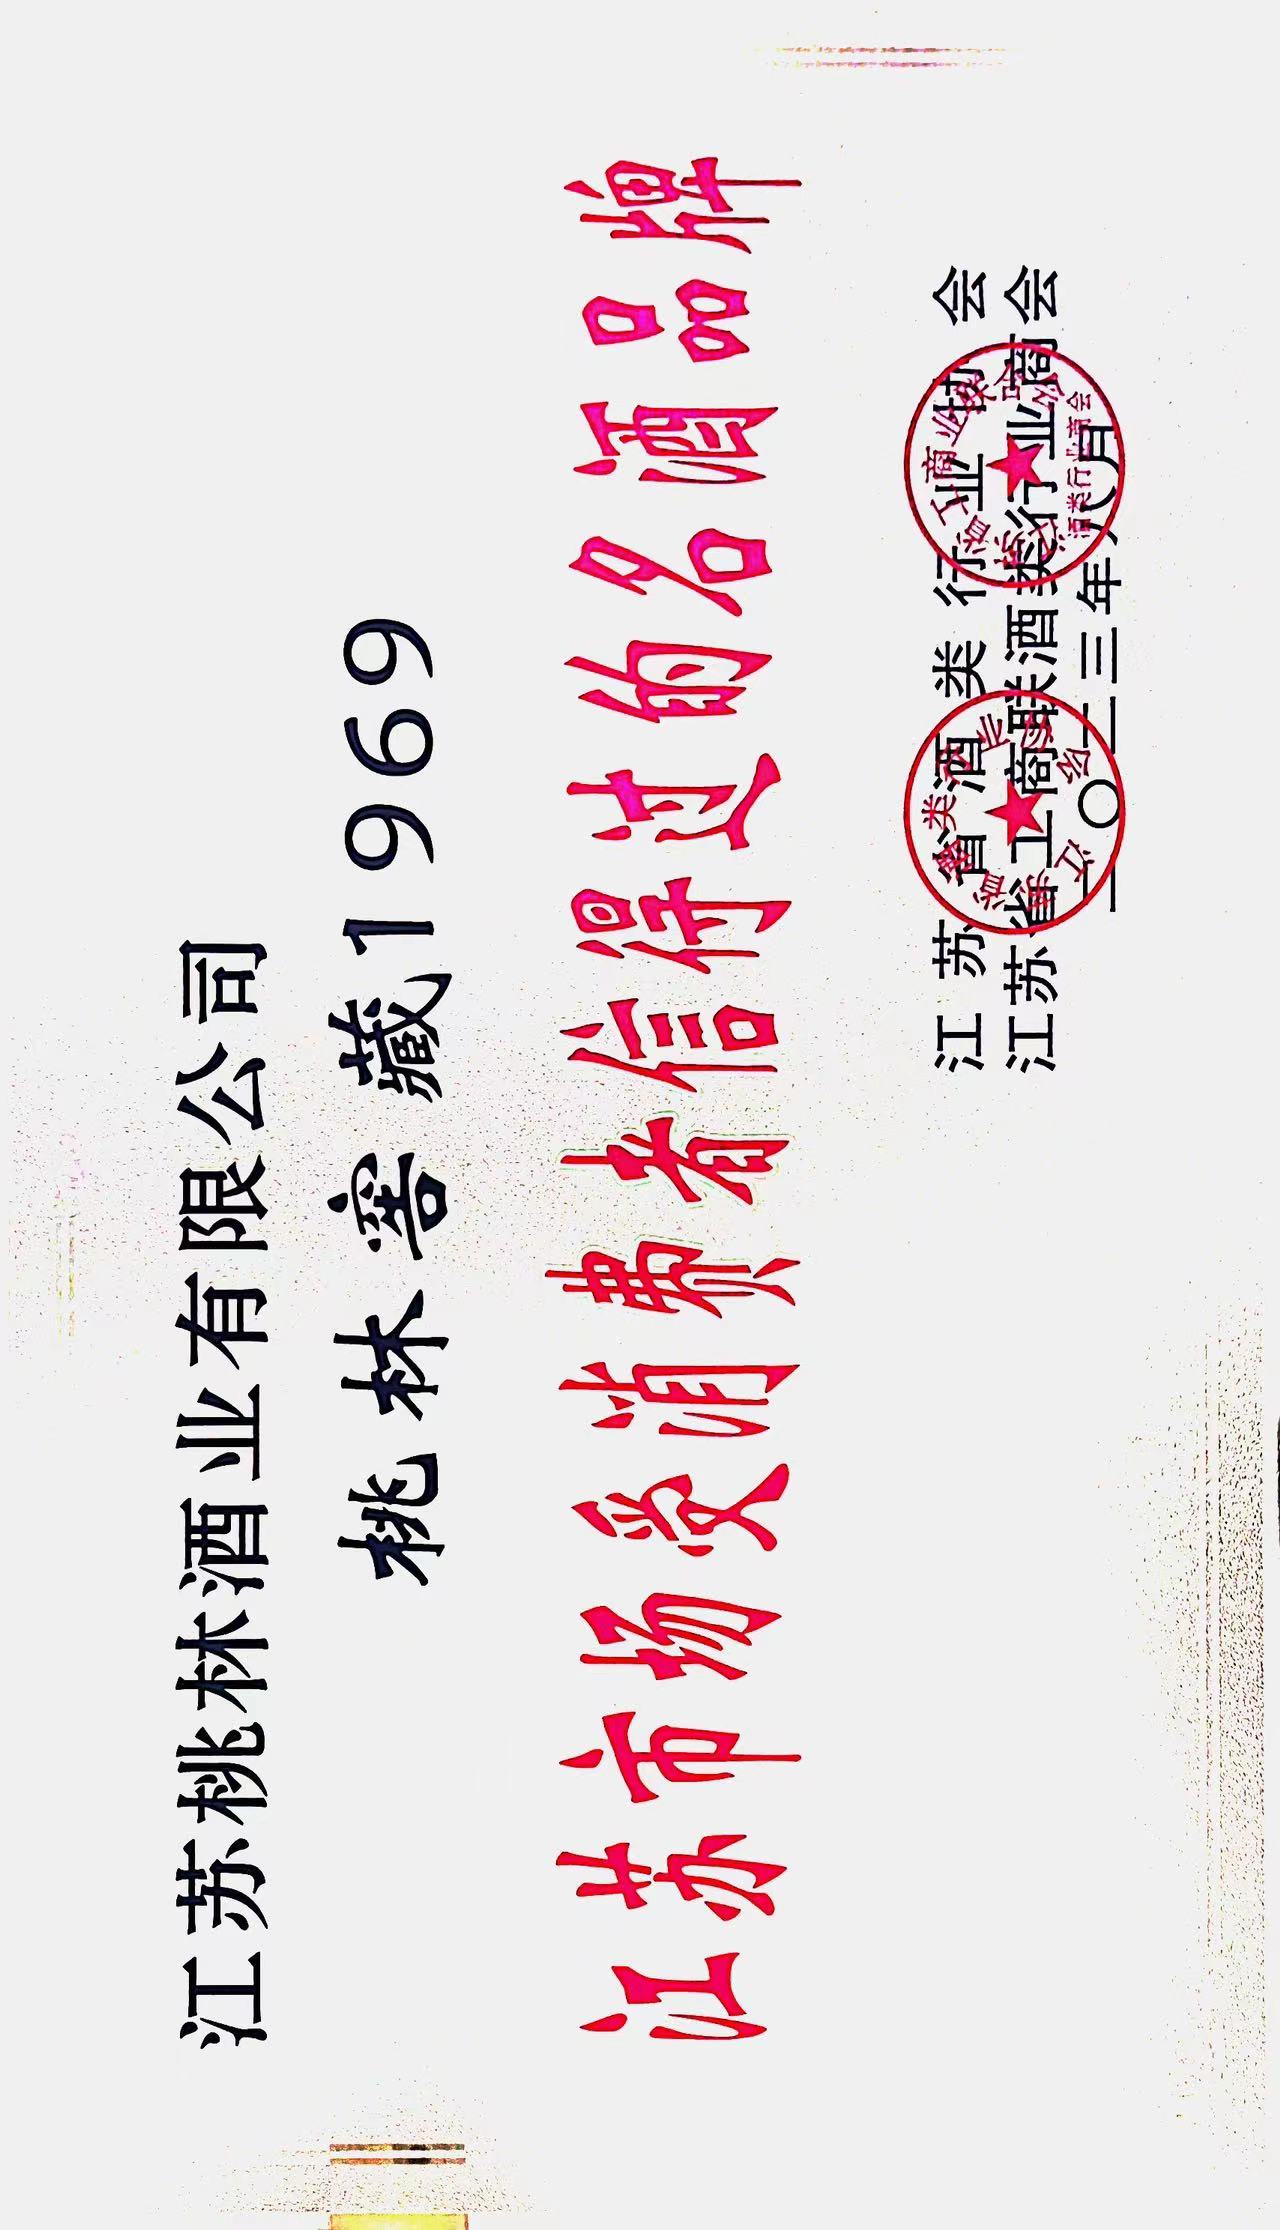 江苏桃林酒业有限公司
桃林窖藏1969
江苏市场受消费者信得过的名酒品牌
江苏省酒类行业协会
江苏省工商联酒类行业商会
二〇二三年八月
江苏省酒类行业协会
江苏省工商业联合会
酒类行业商会